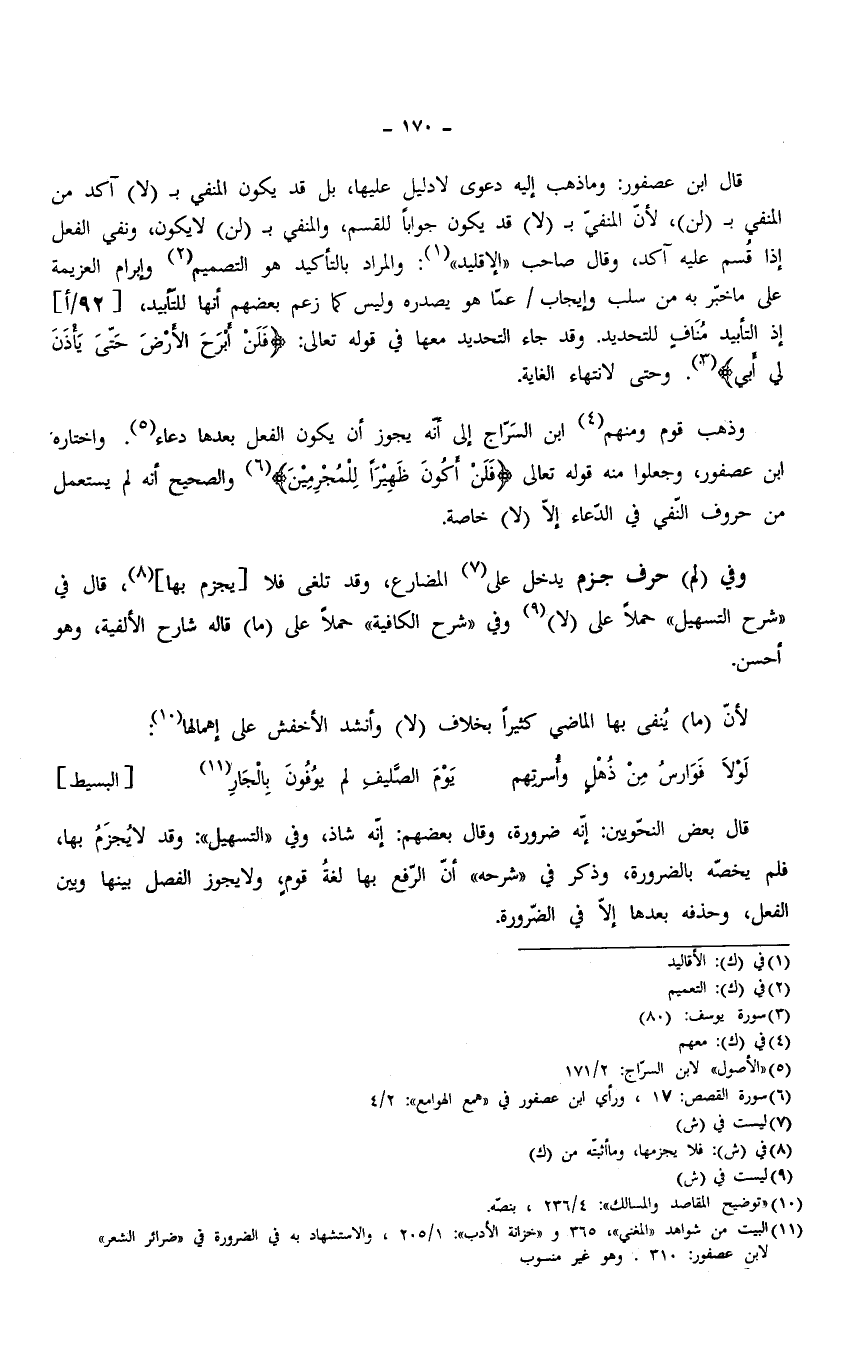 – ١٧٠ –
قال ابن عصفور: وماذهب إليه دعوى لادليل عليها، بل قد يكون المنفي بـ (لا) آكد من
المنفي بـ (لن)، لأنّ المنفيّ بـ (لا) قد يكون جواباً للقسم، والمنفي بـ (لن) لايكون، ونفي الفعل
إذا قُسم عليه آكد، وقال صاحب «الإقليد»(١): والمراد بالتأكيد هو التصميم(٢) وإبرام العزيمة
على ماخبّر به من سلب وإيجاب / عمّا هو يصدره وليس كما زعم بعضهم أنها للتأبيد، [٩٢/أ]
إذ التأبيد مُنَافٍ للتحديد. وقد جاء التحديد معها في قوله تعالى: ﴿فَلَنْ أَبْرَحَ الأَرْضَ حَتَّىَ يَأْذَنَ
لي أَبي﴾(٣). وحتى لانتهاء الغاية.
وذهب قوم ومنهم(٤) ابن السَرّاج إلى أنّه يجوز أن يكون الفعل بعدها دعاء(٥). واختاره
ابن عصفور، وجعلوا منه قوله تعالى ﴿فَلَنْ أَكُونَ ظَهِيْرَاً لِلْمُجْرِمِيْنَ﴾(٦) والصحيح أنه لم يستعمل
من حروف النّفي في الدّعاء إلاّ (لا) خاصة.
وفي (لم) حرف جزم يدخل على(٧) المضارع، وقد تلغى فلا [يجزم بها](٨)، قال في
«شرح التسهيل» حملاً على (لا)(٩) وفي «شرح الكافية» حملاً على (ما) قاله شارح الألفية، وهو
أحسن.
لأنّ (ما) يُنفى بها الماضي كثيراً بخلاف (لا) وأنشد الأخفش على إهمالها(١٠):
لَوْلاَ فَوَارسُ مِنْ ذُهْلٍ وأُسرتِهم يَوْمَ الصَّليفِ لم يوُفُونَ بِالْجَارِ(١١) [البسيط]
قال بعض النحّويين: إنّه ضرورة، وقال بعضهم: إنّه شاذ، وفي «التسهيل»: وقد لايُجزَمُ بها،
فلم يخصّه بالضرورة، وذكر في «شرحه» أنّ الرّفع بها لغةُ قومٍ، ولايجوز الفصل بينها وبين
الفعل، وحذفه بعدها إلاّ في الضّرورة.
(١) في (ك): الأقاليد
(٢) في (ك): التعميم
(٣) سورة يوسف: (٨٠)
(٤) في (ك): معهم
(٥) «الأصول» لابن السرّاج: ١٧١/٢
(٦) سورة القصص: ١٧ ، ورأي ابن عصفور في «همع الهوامع»: ٤/٢
(٧) ليست في (ش)
(٨) في (ش): فلا يجزمها، وماأثبتّه من (ك)
(٩) ليست في (ش)
(١٠) «توضيح المقاصد والمسالك»: ٢٣٦/٤ ، بنصّه.
(١١) البيت من شواهد «المغني»، ٣٦٥ و «خزانة الأدب»: ٢٠٥/١ ، والاستشهاد به في الضرورة في «ضرائر الشعر»
لابن عصفور: ٣١٠ . وهو غير منسوب